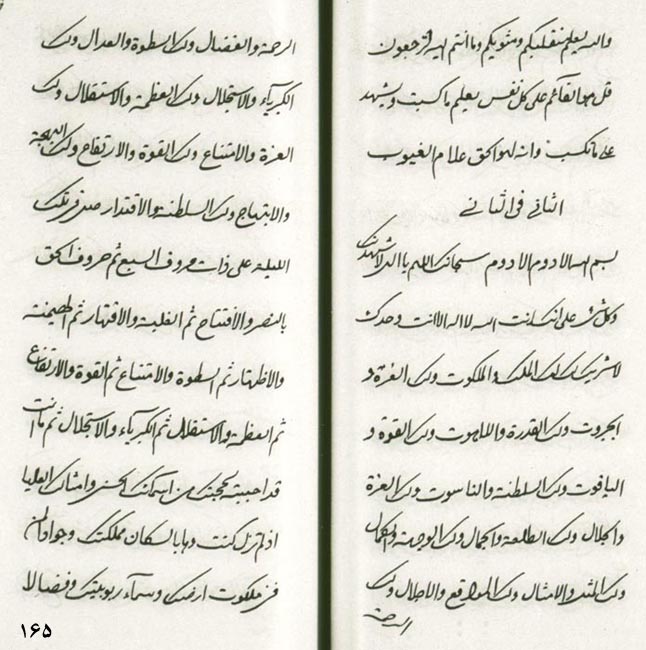 والله يعلم منقلبكم ومثويكم وما انتم اليه لترجعون
قل هو القآئم على كل نفس يعلم ما كسبت ويشهد
على ما تكسب وانه لهو الحق علام الغيوب
الثاني في الثاني
بسم الله الادوم الادوم سبحانك اللهم يا الهي لاشهدنك
وكل شئ على انك انت الله لا اله الا انت وحدك
لا شريك لك لك الملك والملكوت ولك العزة و
الجبروت ولك القدرة واللاهوت ولك القوة و
الياقوت ولك السلطنة والناسوت ولك العزة
والجلال ولك الطلعة والجمال ولك الوجهة والكمال
ولك المثل والامثال ولك المواقع والاجلال ولك
الرحمة
الرحمة والفضال ولك السطوة والعدال ولك
الكبرياء والاستجلال ولك العظمة والاستقلال ولك
العزة والامتناع ولك القوة والارتفاع ولك البهجة
والابتهاج ولك السلطنة والاقتدار صل في تلك
الليلة على ذات حروف السبع ثم حروف الحق
بالنصر والافتتاح ثم الغلبة والاقتهار ثم الهيمنة
والاظهار ثم السطوة والامتناع ثم القوة والارتفاع
ثم العظمة والاستقلال ثم الكبرياء والاستجلال ثم ما انت
قد احببته لمحبتك من اسمائك الحسنى وامثالك العليا
اذ لم تزل كنت وهابا لسكان مملكتك وجوادا لمن
في ملكوت ارضك وسمآء ربوبيتك وفضالا
١۶۵